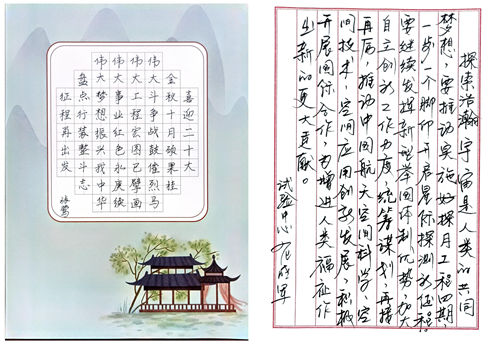 喜迎二十大
金秋十月硕果挂
伟大斗争战鼓催烈马
伟大工程宏图已擘画
伟大事业红色永赓续
伟大梦想振兴我中华
盘点行装整斗志
征程再出发
探索浩瀚宇宙是人类的共同
梦想，要推动实施好探月工程四期，
一步一个脚印开启星际探测新征程。
要继续发挥新型举国体制优势，加大
自主创新工作力度，统筹谋划，再接
再厉，推动中国航天空间科学、空
间技术、空间应用创新发展，积极
开展国际合作，为增进人类福祉作
出新的更大贡献。
试验中心